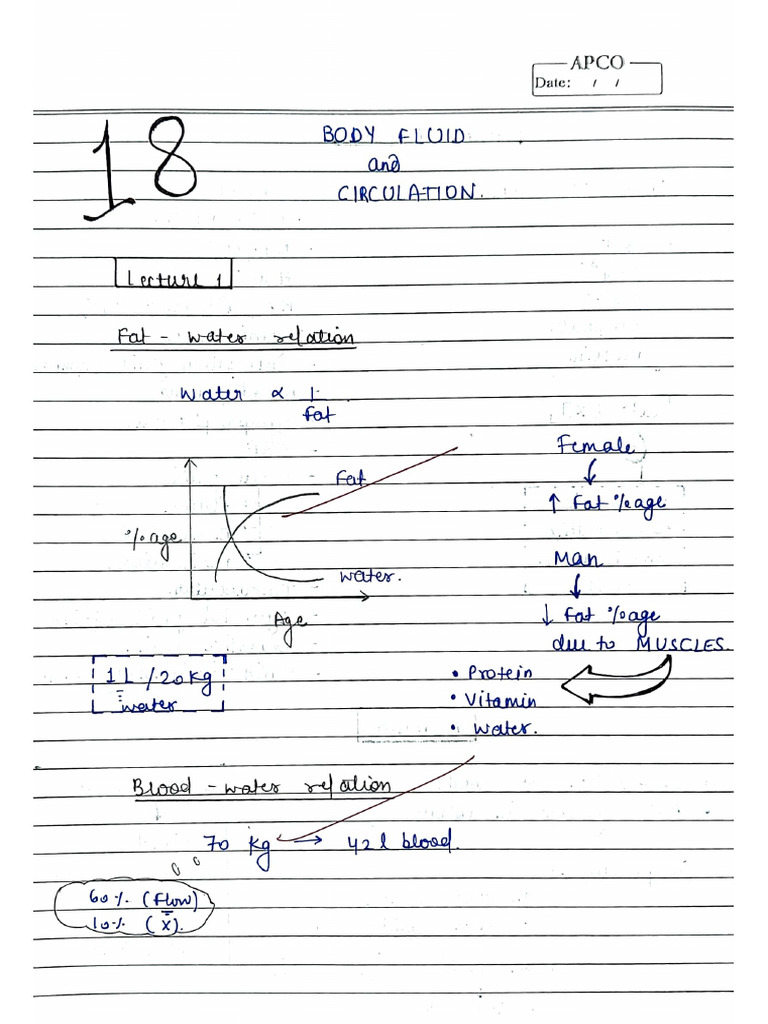 APCO
Date: / /
18
BODY FLUID
and
CIRCULATION.
Lecture 1
Fat - water relation
Water ∝ 1/fat
Fat
% age
water.
Age
Female
↓
↑ Fat % age
Man
↓
↓ Fat % age
due to MUSCLES.
• Protein
• Vitamin
• water.
1 L / 20 kg
water
Blood - water relation
70 kg → 42 l blood.
60 % (flow)
10 % (X̄).